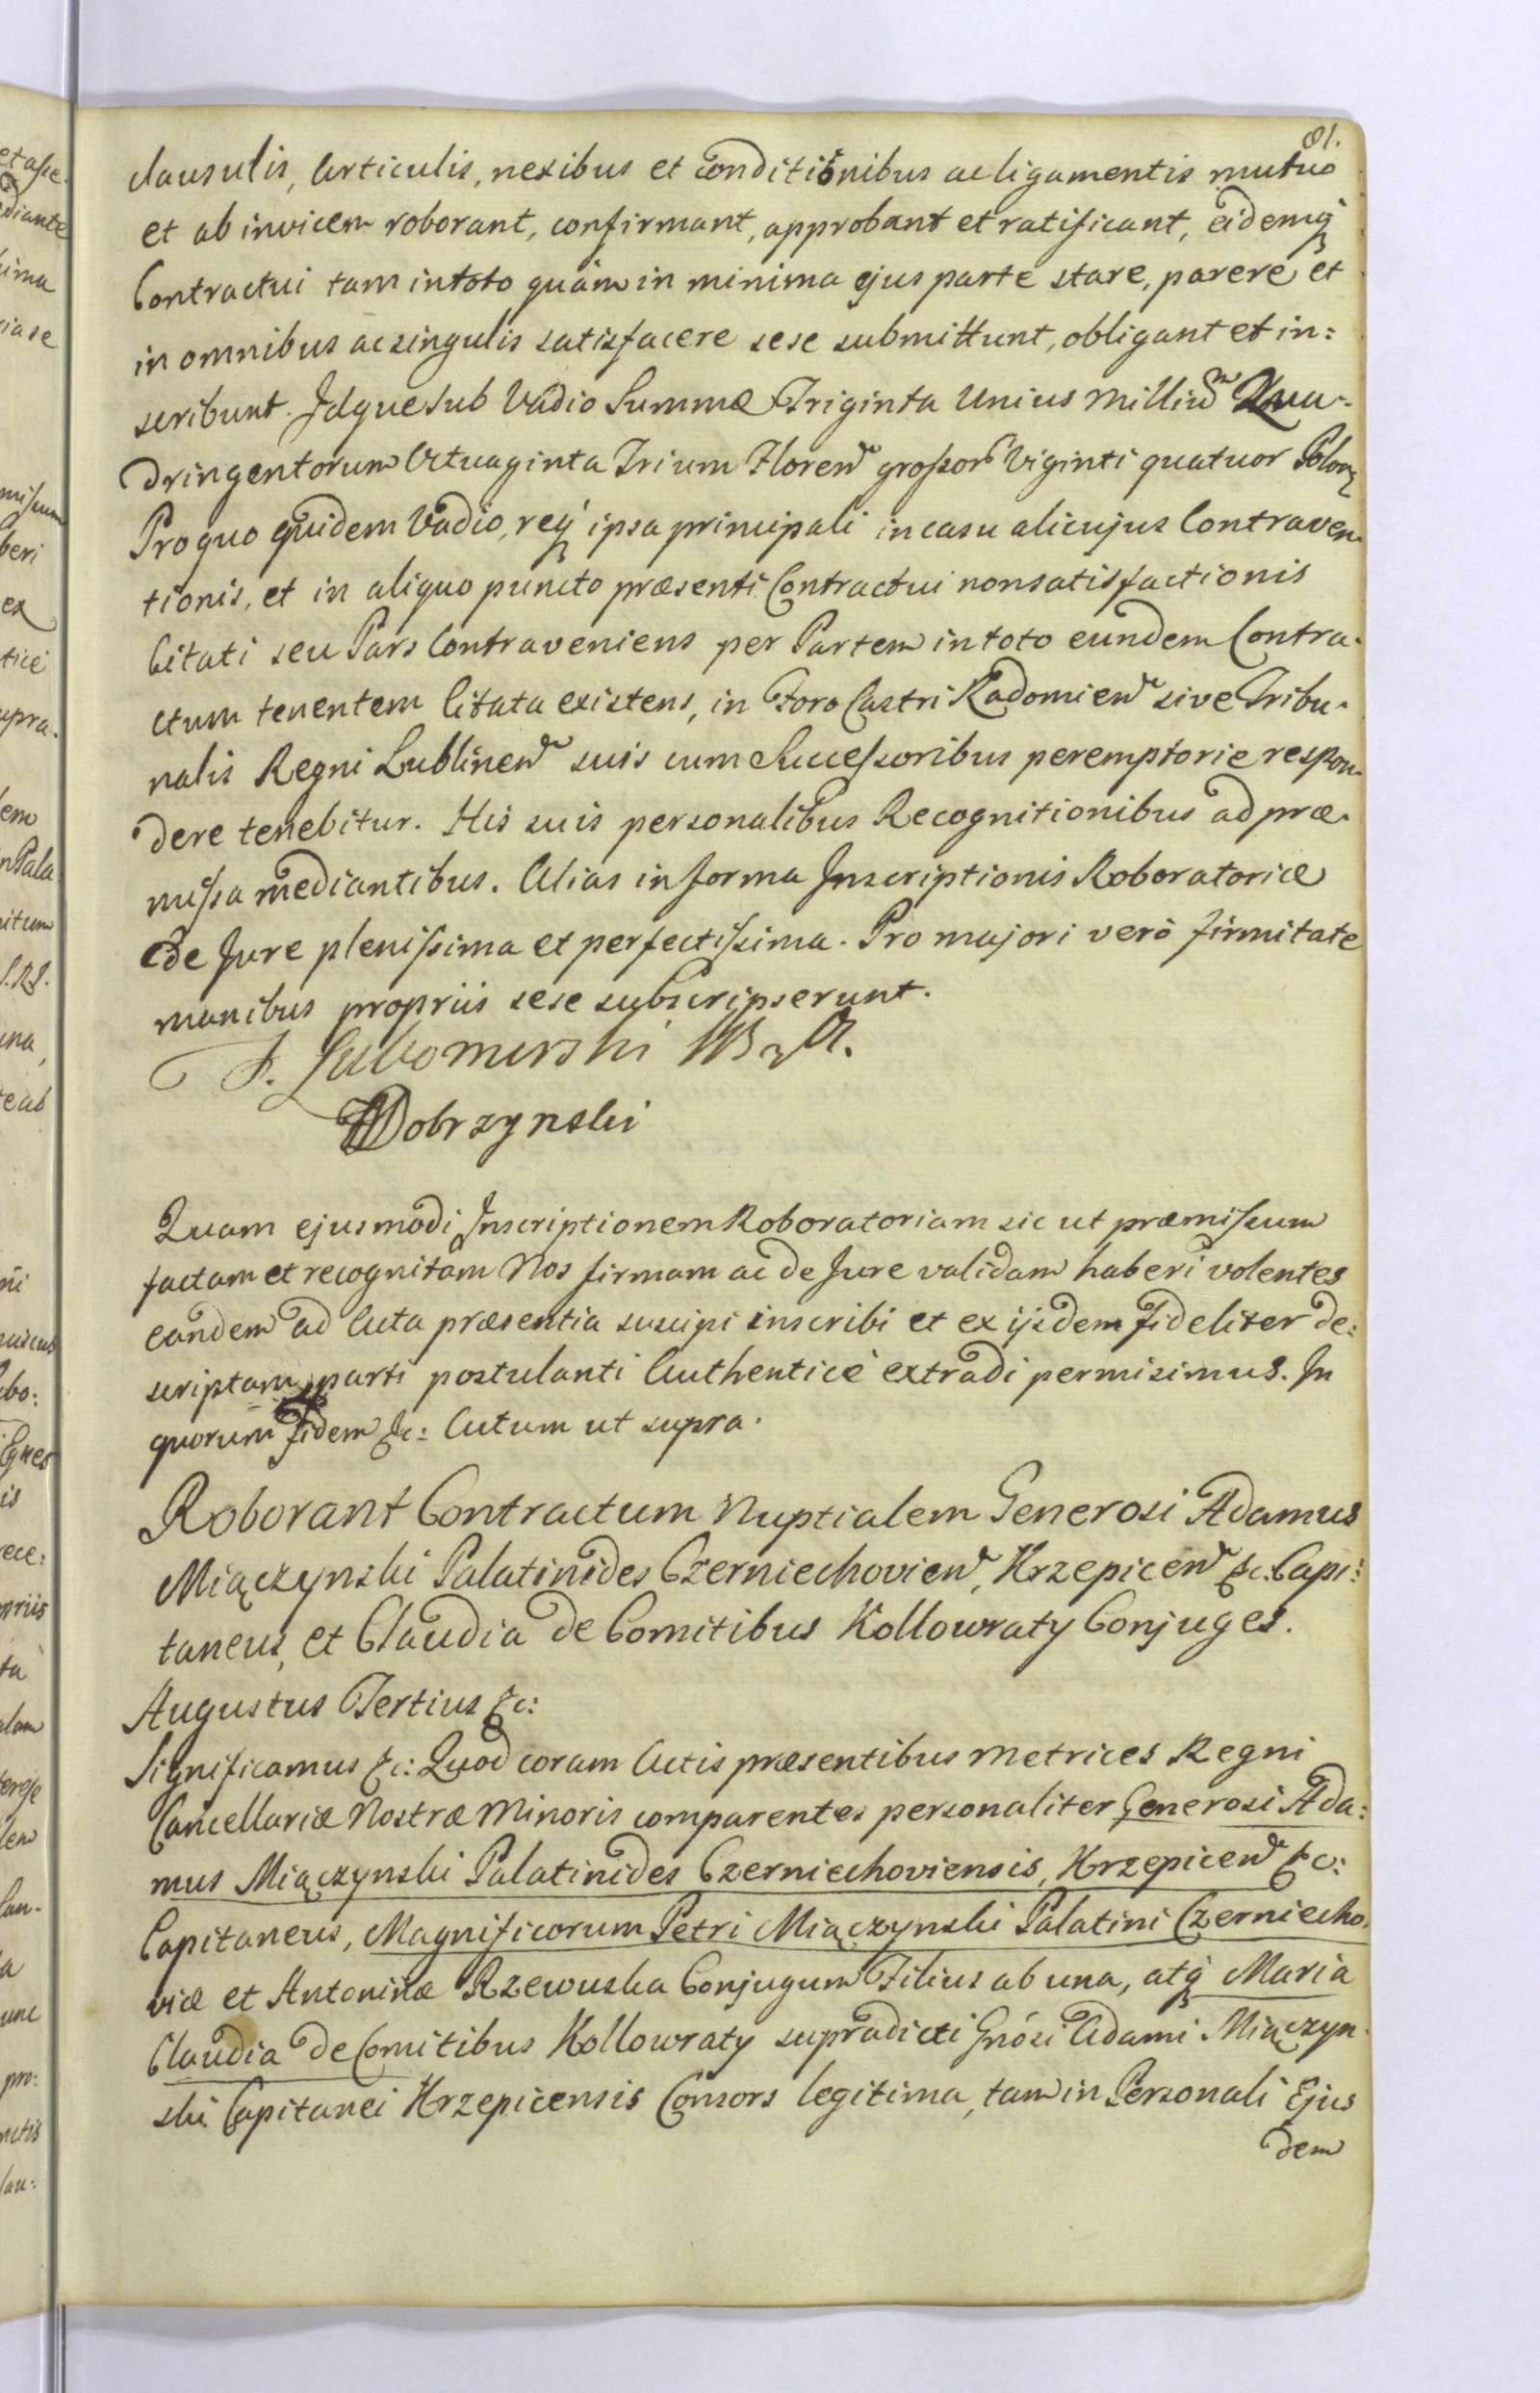 81.
clausulis, Articulis, nexibus et conditionibus ac ligamentis mutuo
et ab invicem roborant, confirmant, approbant et ratificant, eidemq
Contractui tam in toto quàm in minima ejus parte stare, parere et
in omnibus ac singulis satisfacere sese submittunt, obligant et in:
scribunt. Idque sub Vadio Summæ Triginta Unius Milliu Qua-
dringentorum Octuaginta Trium Floren grossor Viginti quatuor Polon
Pro quo quidem Vadio, req ipsa principali in casu alicujus Contraven
tionis, et in aliquo puncto præsenti Contractui non satisfactionis
Citati seu Pars Contraveniens per Partem in toto eundem Contra-
ctum tenentem Citata existens, in Foro Castri Radomien sive Tribu-
nalis Regni Lublinen suis cum Successoribus peremptorie respon
dere tenebitur. His suis personalibus Recognitionibus ad præ-
missa mediantibus. Alias in forma Inscriptionis Roboratoriæ
de Jure plenissima et perfectissima. Pro majori verò firmitate
manibus propriis sese subscripserunt.
F. Lubomirski
Dobrzynski
Quam ejusmodi Inscriptionem Roboratoriam sic ut præmissum
factam et recognitam Nos firmam ac de Jure validam haberi volentes
eandem ad Acta præsentia suscipi inscribi et ex ijsdem fideliter de:
scriptam parti postulanti Authenticè extradi permisimus. In
quorum fidem &c: Actum ut supra.
Roborant Contractum Nuptialem Generosi Adamus
Miączynski Palatinides Czerniechovien, Krzepicen &c. Capi:
taneus, et Claudia de Comitibus Kollowraty Conjuges.
Augustus Tertius &c:
Significamus &c: Quod coram Actis præsentibus Metrices Regni
Cancellariæ Nostræ Minoris comparentes personaliter Generosi Ada:
mus Miączynski Palatinides Czerniechoviensis, Krzepicen &c:
Capitaneus, Magnificorum Petri Miączynski Palatini Czerniecho-
viæ et Antoninæ Rzewuska Conjugum Filius ab una, atq Maria
Claudia de Comitibus Kollowraty supradicti Gnósi Adami Miączyn-
ski Capitanei Krzepicensis Consors legitima, tam in Personali Ejus
dem